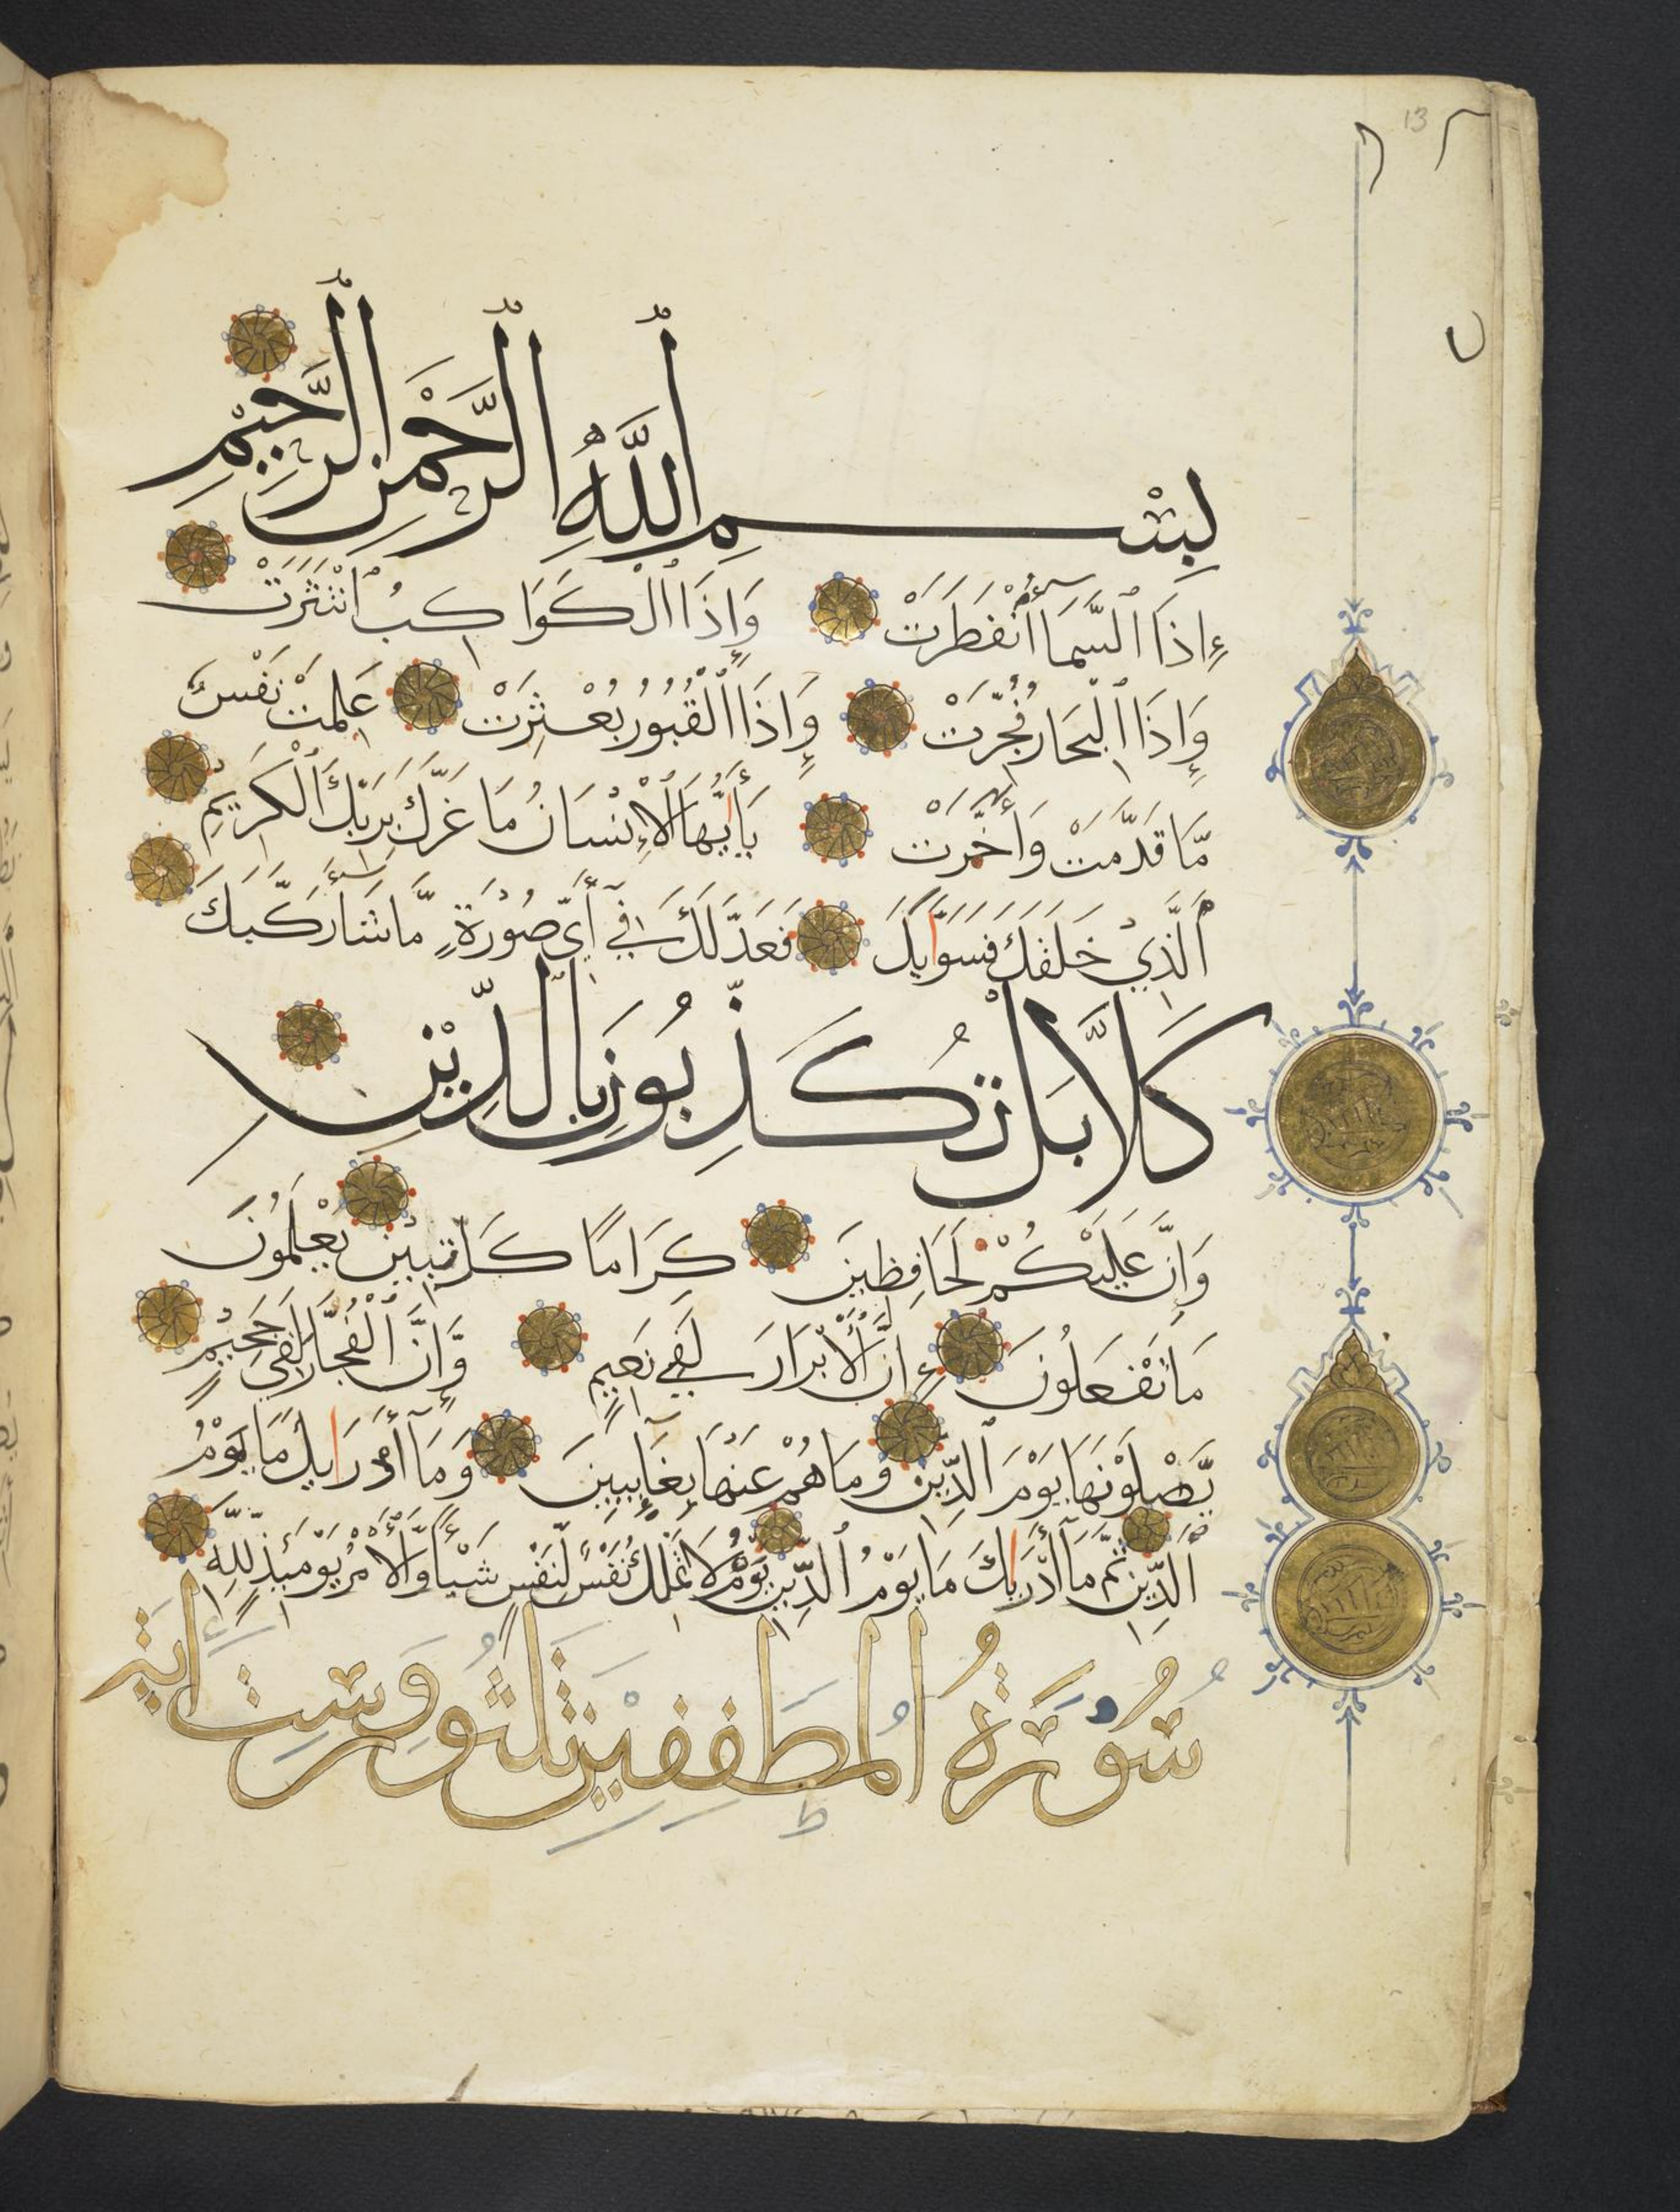 13
بِسْمِ ٱللَّهِ ٱلرَّحْمَٰنِ ٱلرَّحِيمِ
إِذَا ٱلسَّمَآءُ ٱنْفَطَرَتْ وَإِذَا ٱلْكَوَاكِبُ ٱنْتَثَرَتْ
وَإِذَا ٱلْبِحَارُ فُجِّرَتْ وَإِذَا ٱلْقُبُورُ بُعْثِرَتْ عَلِمَتْ نَفْسٌ
مَّا قَدَّمَتْ وَأَخَّرَتْ يَٰأَيُّهَا ٱلْإِنْسَانُ مَا غَرَّكَ بِرَبِّكَ ٱلْكَرِيمِ
ٱلَّذِي خَلَقَكَ فَسَوَّىٰكَ فَعَدَّلَكَ فِي أَيِّ صُورَةٍ مَّا شَآءَ رَكَّبَكَ
كَلَّا بَلْ تُكَذِّبُونَ بِٱلدِّينِ
وَإِنَّ عَلَيْكُمْ لَحَافِظِينَ كِرَامًا كَاتِبِينَ يَعْلَمُونَ
مَا تَفْعَلُونَ إِنَّ ٱلْأَبْرَارَ لَفِي نَعِيمٍ وَإِنَّ ٱلْفُجَّارَ لَفِي جَحِيمٍ
يَصْلَوْنَهَا يَوْمَ ٱلدِّينِ وَمَا هُمْ عَنْهَا بِغَآئِبِينَ وَمَآ أَدْرَىٰكَ مَا يَوْمُ
ٱلدِّينِ ثُمَّ مَآ أَدْرَىٰكَ مَا يَوْمُ ٱلدِّينِ يَوْمُ لَا تَمْلِكُ نَفْسٌ لِّنَفْسٍ شَيْئًا وَٱلْأَمْرُ يَوْمَئِذٍ لِّلَّهِ
سُورَةُ ٱلْمُطَفِّفِينَ ثَلَثُونَ وَسِتُّ ايَةٍ